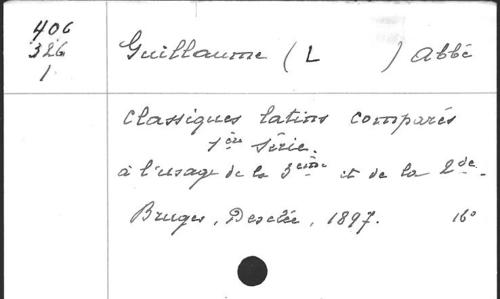 406
326
1
Guillaume (L ) Abbé
Classiques latins comparés
1ère série.
à l'usage de la 3ème et de la 2de.
Bruges, Desclée, 1897. 16°